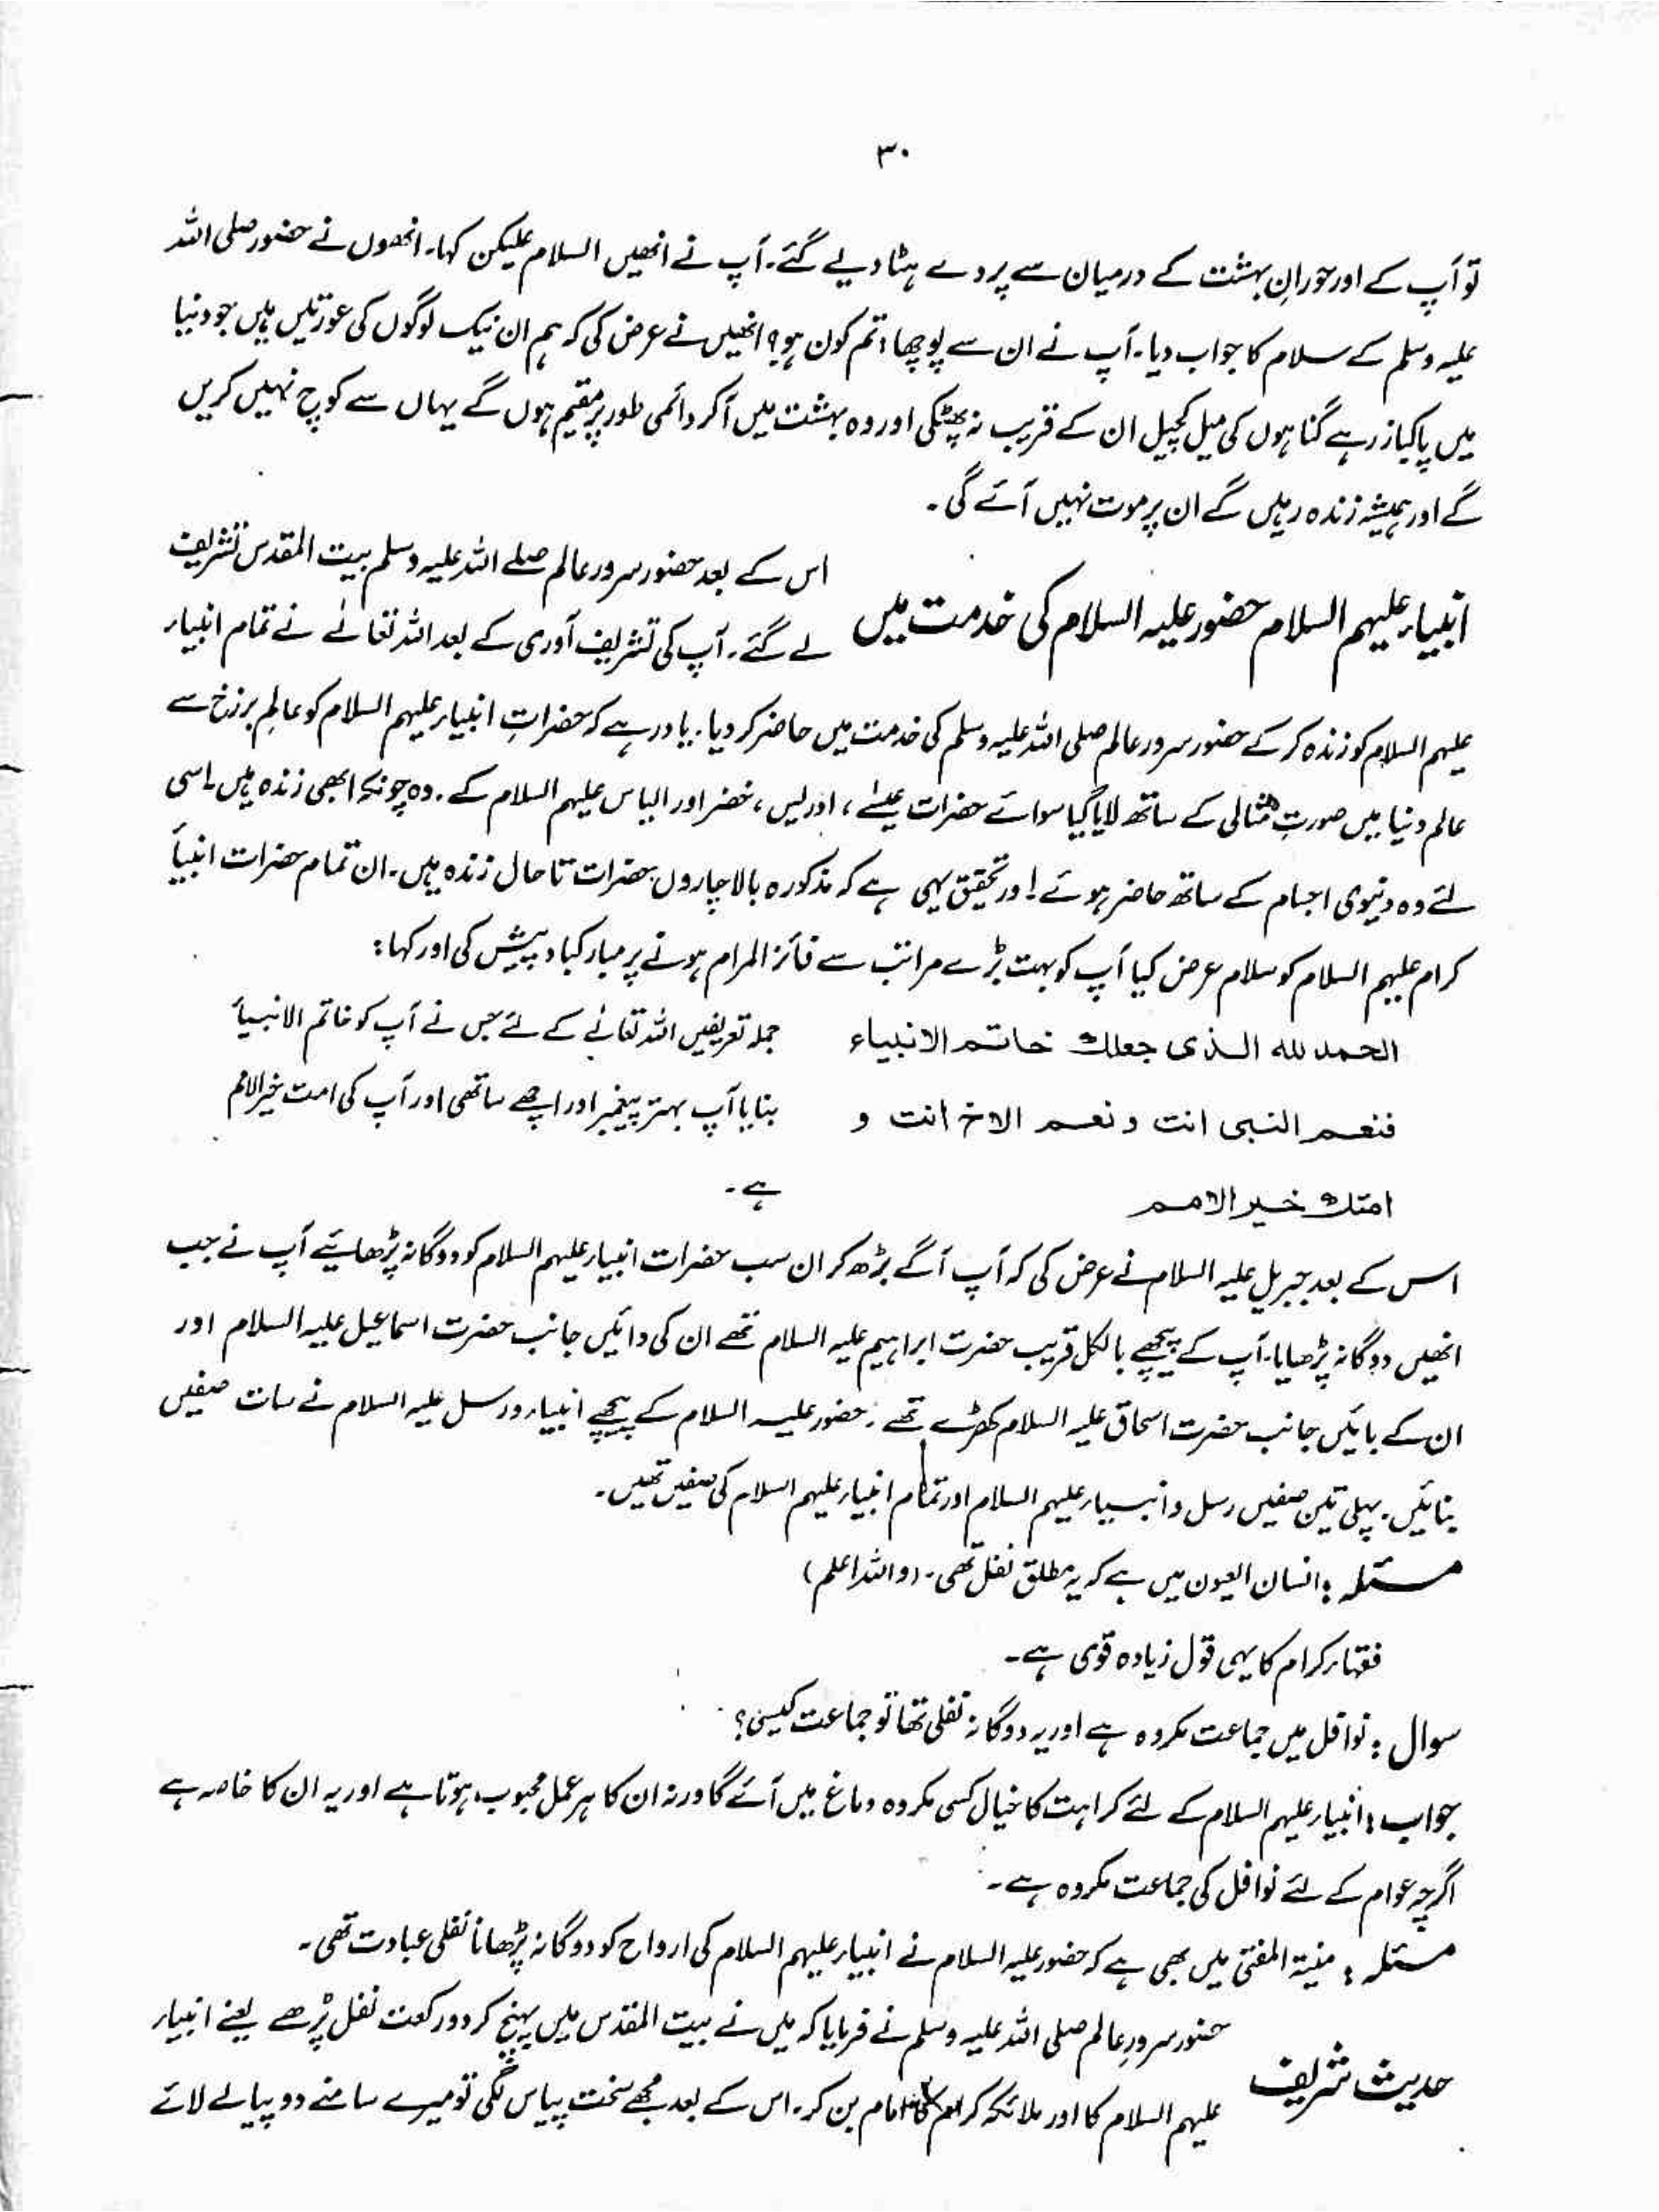 ۳۰
تو آپ کے اور حورانِ بہشت کے درمیان سے پردے ہٹا دیے گئے۔ آپ نے انھیں السلام علیکن کہا۔ انھوں نے حضور صلی اللہ
علیہ وسلم کے سلام کا جواب دیا۔ آپ نے ان سے پوچھا: تم کون ہو؟ انھیں نے عرض کی کہ ہم ان نیک لوگوں کی عورتیں ہیں جو دنیا
میں پاکباز رہے گناہوں کی میل کچیل ان کے قریب نہ پھٹکی اور وہ بہشت میں آکر دائمی طور پر مقیم ہوں گے یہاں سے کوچ نہیں کریں
گے اور ہمیشہ زندہ رہیں گے ان پر موت نہیں آئے گی۔
انبیاء علیہم السلام حضور علیہ السلام کی خدمت میں
اس کے بعد حضور سرور عالم صلے اللہ علیہ وسلم بیت المقدس تشریف
لے گئے۔ آپ کی تشریف آوری کے بعد اللہ تعالےٰ نے تمام انبیاء
علیہم السلام کو زندہ کر کے حضور سرور عالم صلی اللہ علیہ وسلم کی خدمت میں حاضر کر دیا۔ یاد رہے کہ حضراتِ انبیاء علیہم السلام کو عالمِ برزخ سے
عالم دنیا میں صورتِ مثالی کے ساتھ لایا گیا سوائے حضرات عیسےٰ، ادریس، خضر اور الیاس علیہم السلام کے۔ وہ چونکہ ابھی زندہ ہیں۔ اسی
لئے وہ دنیوی اجسام کے ساتھ حاضر ہوئے! ور تحقیق یہی ہے کہ مذکورہ بالا چاروں حضرات تا حال زندہ ہیں۔ ان تمام حضرات انبیأ
کرام علیہم السلام کو سلام عرض کیا آپ کو بہت بڑے مراتب سے فائز المرام ہونے پر مبارکباد پیش کی اور کہا:
الحمد لله الذی جعلك خاتم الانبیاء
فنعم النبی انت و نعم الاخ انت و
امتك خیر الامم
جملہ تعریفیں اللہ تعالےٰ کے لئے جس نے آپ کو خاتم الانبیأ
بنایا آپ بہتر پیغمبر اور اچھے ساتھی اور آپ کی امت خیرالامم
ہے۔
اس کے بعد جبریل علیہ السلام نے عرض کی کہ آپ آگے بڑھ کر ان سب حضرات انبیاء علیہم السلام کو دوگانہ پڑھائیے آپ نے جب
انھیں دوگانہ پڑھایا۔ آپ کے پیچھے بالکل قریب حضرت ابراہیم علیہ السلام تھے ان کی دائیں جانب حضرت اسماعیل علیہ السلام اور
ان کے بائیں جانب حضرت اسحاق علیہ السلام کھڑے تھے۔ حضور علیہ السلام کے پیچھے انبیاء و رسل علیہ السلام نے سات صفیں
بنائیں۔ پہلی تین صفیں رسل و انبیاء علیہم السلام اور تمام انبیاء علیہم السلام کی صفیں تھیں۔
مسئلہ: انسان العیون میں ہے کہ یہ مطلق نفل تھی۔ (واللہ اعلم)
فقہاء کرام کا یہی قول زیادہ قوی ہے۔
سوال: نوافل میں جماعت مکروہ ہے اور یہ دوگانہ نفلی تھا تو جماعت کیسی؟
جواب: انبیاء علیہم السلام کے لئے کراہت کا خیال کسی مکروہ دماغ میں آئے گا ورنہ ان کا ہر عمل محبوب ہوتا ہے اور یہ ان کا خاصہ ہے
اگرچہ عوام کے لئے نوافل کی جماعت مکروہ ہے۔
مسئلہ: منیۃ المفتی میں بھی ہے کہ حضور علیہ السلام نے انبیاء علیہم السلام کی ارواح کو دوگانہ پڑھانا نفلی عبادت تھی۔
حدیث شریف
حضور سرورِ عالم صلی اللہ علیہ وسلم نے فرمایا کہ میں نے بیت المقدس میں پہنچ کر دو رکعت نفل پڑھے یعنے انبیاء
علیہم السلام کا اور ملائکہ کرام کا امام بن کر۔ اس کے بعد مجھے سخت پیاس لگی تو میرے سامنے دو پیالے لائے